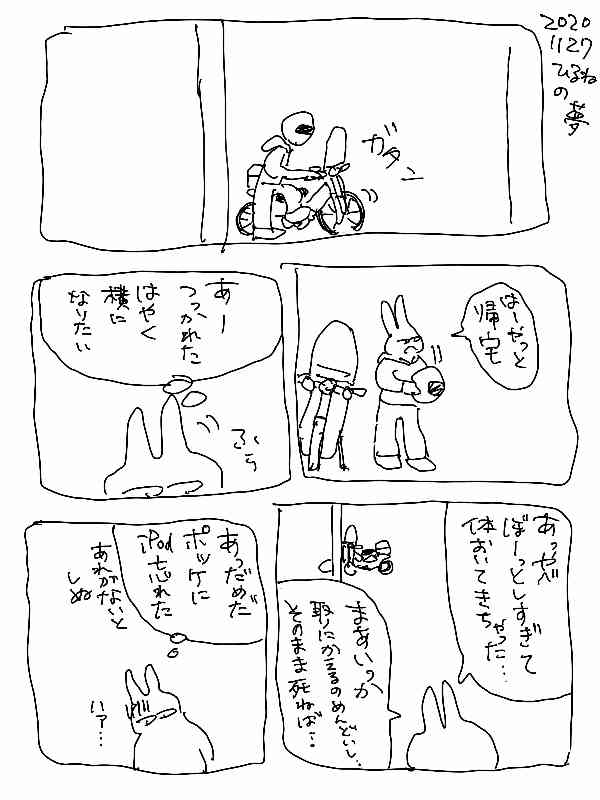 2020
1127
ひるね
の
夢
ガタン
はーやっと
帰宅
あー
つっかれた
はやく
横に
なりたい
ふら
あっやべ
ぼーっとしすぎて
体おいてきちゃった…
まあいっか
取りにかえるのめんどいし…
そのまま死ねば…
あっだめだ
ポッケに
iPod忘れた
あれがないと
しぬ
ハァ…